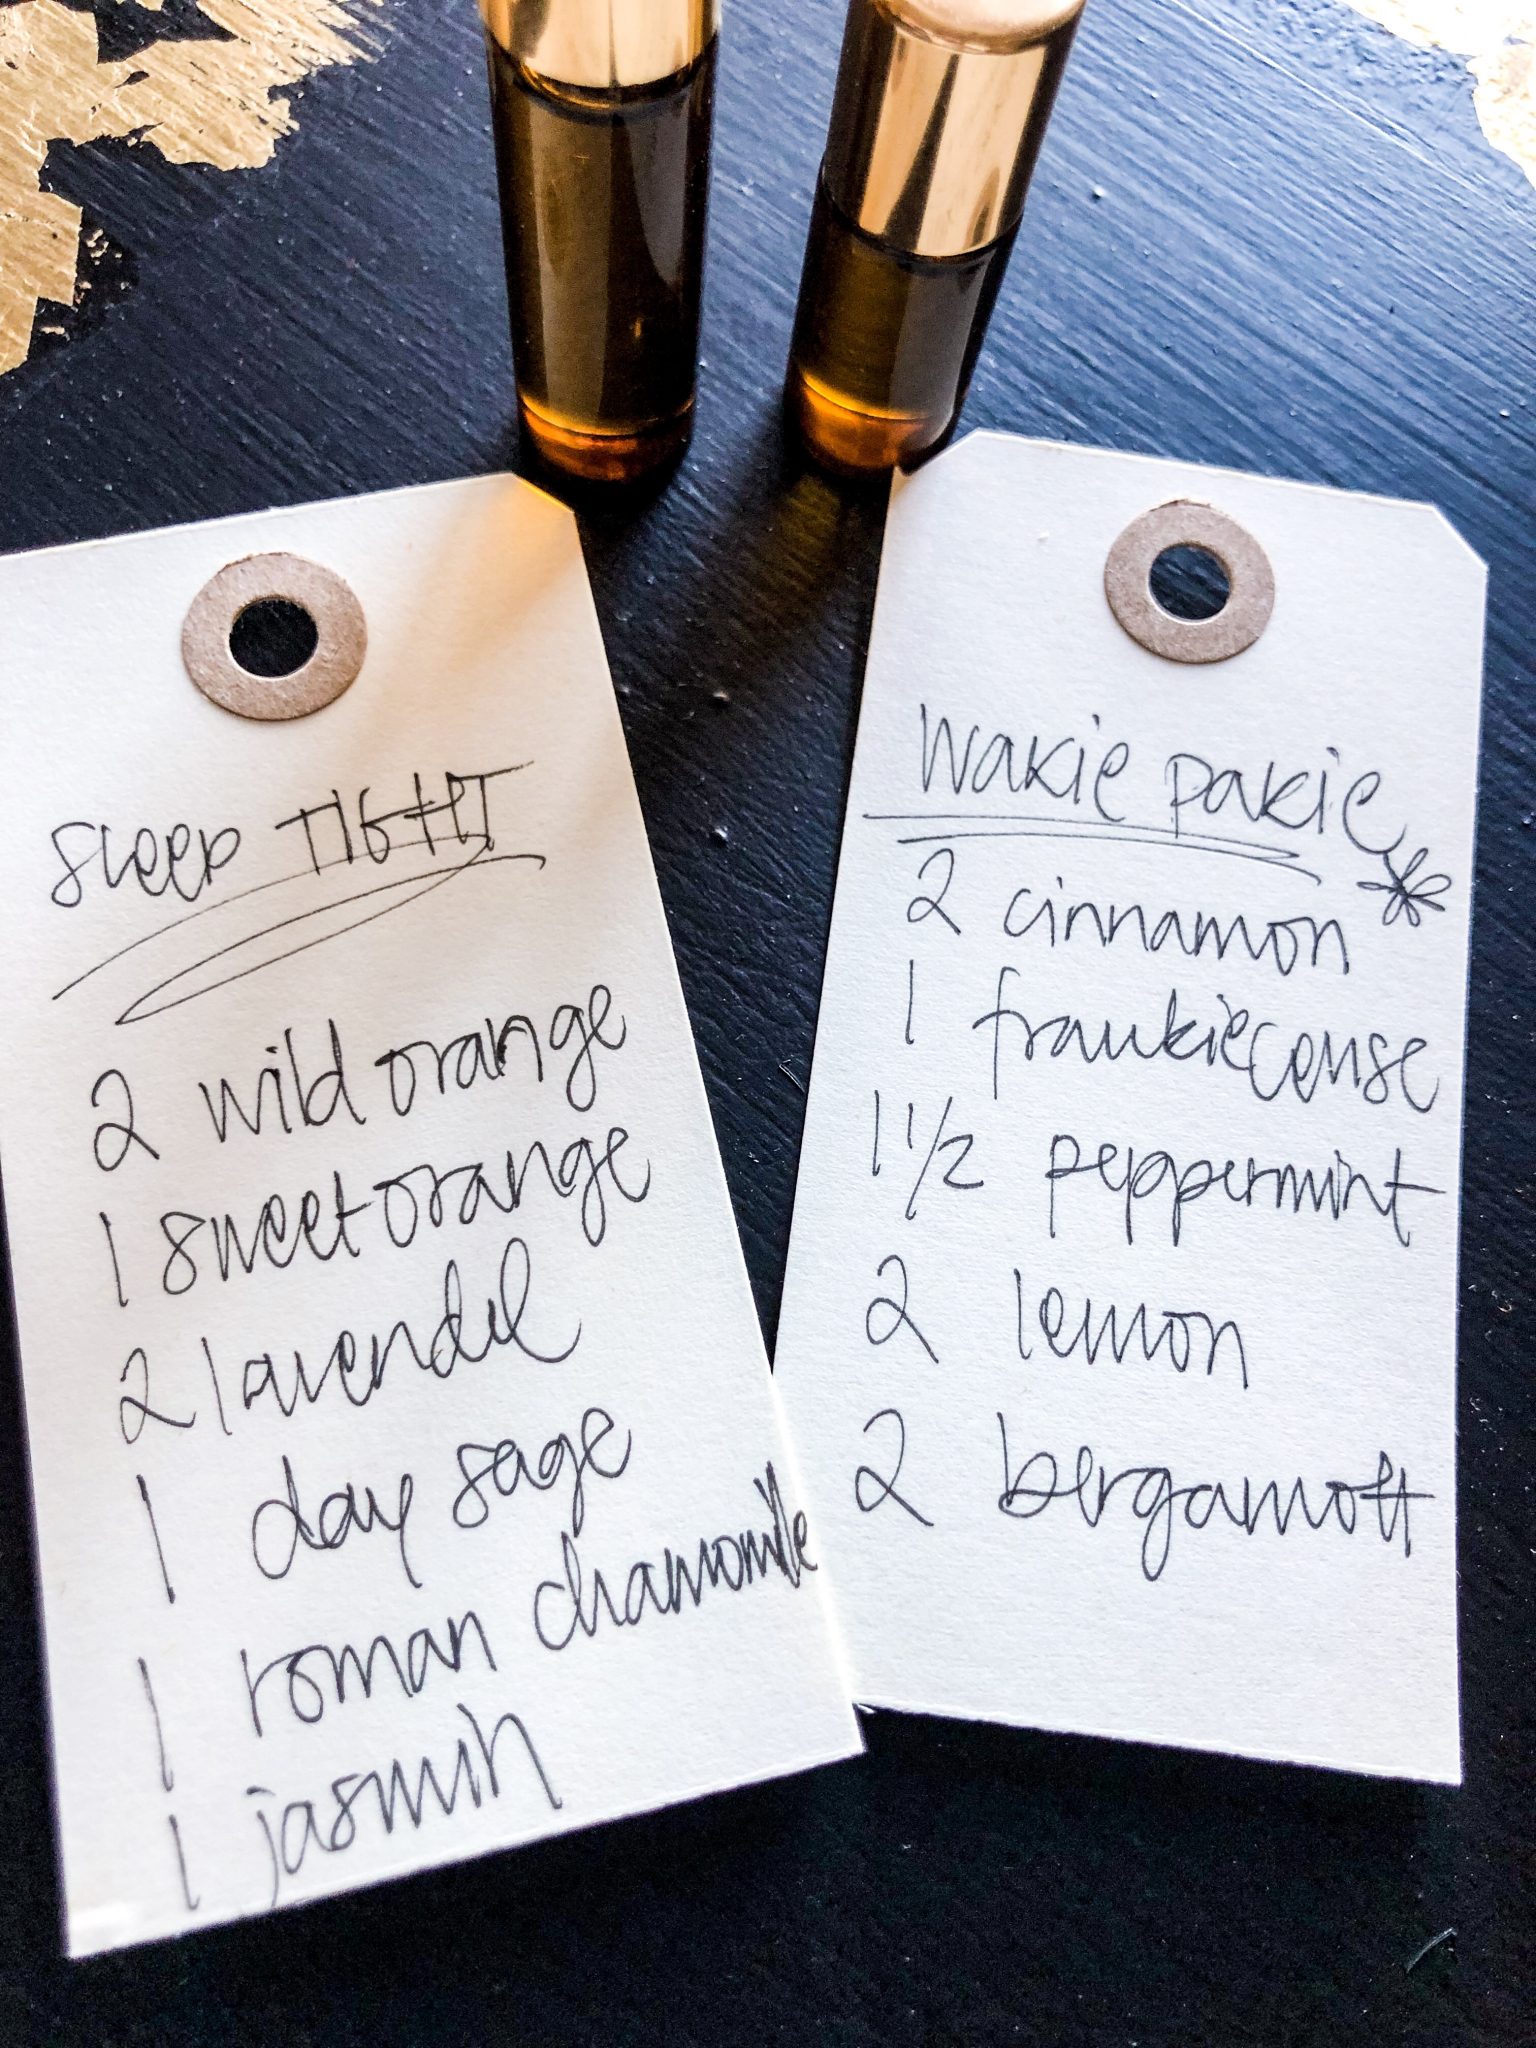 sleep TIGHT
2 wild orange
1 sweet orange
2 lavendel
1 day sage
1 roman chamomille
1 jasmin
Wakie pakie
2 cinnamon
1 frankiecense
1 1/2 peppermint
2 lemon
2 bergamott